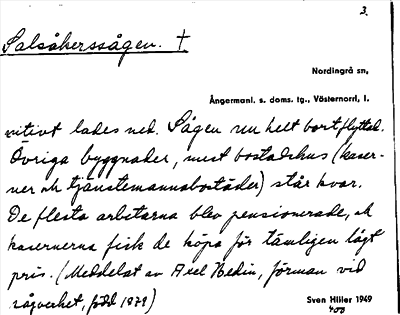 3.
Salsåkerssågen. †
Nordingrå sn,
Ångermanl. s. doms. tg., Västernorrl. l.
nitivt lades ned. Sågen nu helt bortflyttad.
Övriga byggnader, mest bostadshus (kaser-
ner och tjänstemannabostäder) står kvar.
De flesta arbetarna blev pensionerade, och
kasernerna fick de köpa för tämligen lågt
pris. (Meddelat av Axel Hedin, förman vid
sågverket, född 1879)
Sven Hiller 1949